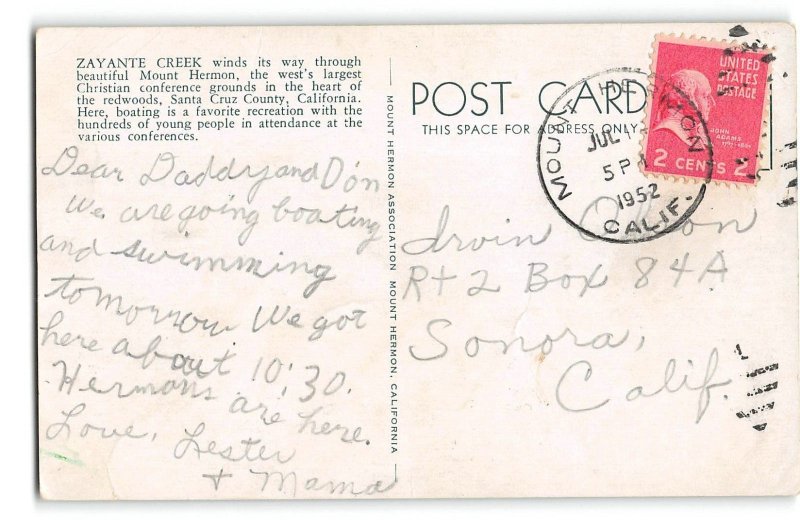 ZAYANTE CREEK winds its way through
beautiful Mount Hermon, the west's largest
Christian conference grounds in the heart of
the redwoods, Santa Cruz County, California.
Here, boating is a favorite recreation with the
hundreds of young people in attendance at the
various conferences.
Dear Daddy and Don
We are going boating
and swimming
tomorrow We got
here about 10:30.
Hermons are here.
Love, Lester
+ Mama
MOUNT HERMON ASSOCIATION MOUNT HERMON, CALIFORNIA
POST CARD
THIS SPACE FOR ADDRESS ONLY
MOUNT HERMON
JUL
5 P
1952
CALIF.
UNITED
STATES
POSTAGE
JOHN
ADAMS
2 CENTS 2
Irvin
Rt 2 Box 84A
Sonora,
Calif.